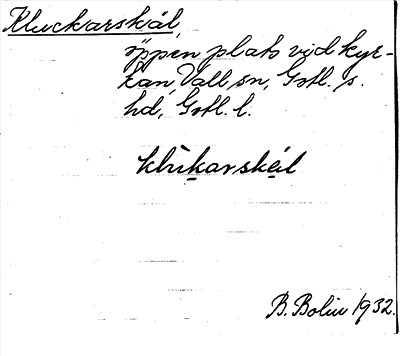 Kluckarskål,
öppen plats vid kyr-
kan, Vall sn, Gotl. s.
hd, Gotl. l.
klùkarskål
B. Bolin 1932.